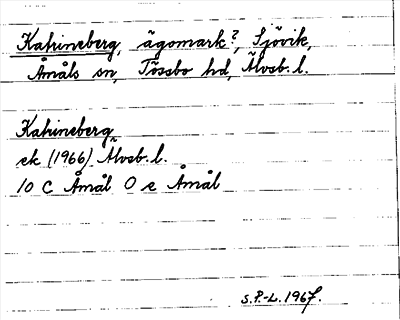 Katrineberg, ägomark?, Sjövik,
Åmåls sn, Tössbo hd, Älvsb. l.
Katrineberg
ek (1966) Älvsb. l.
10 C Åmål O e Åmål
S.P-L. 1967.